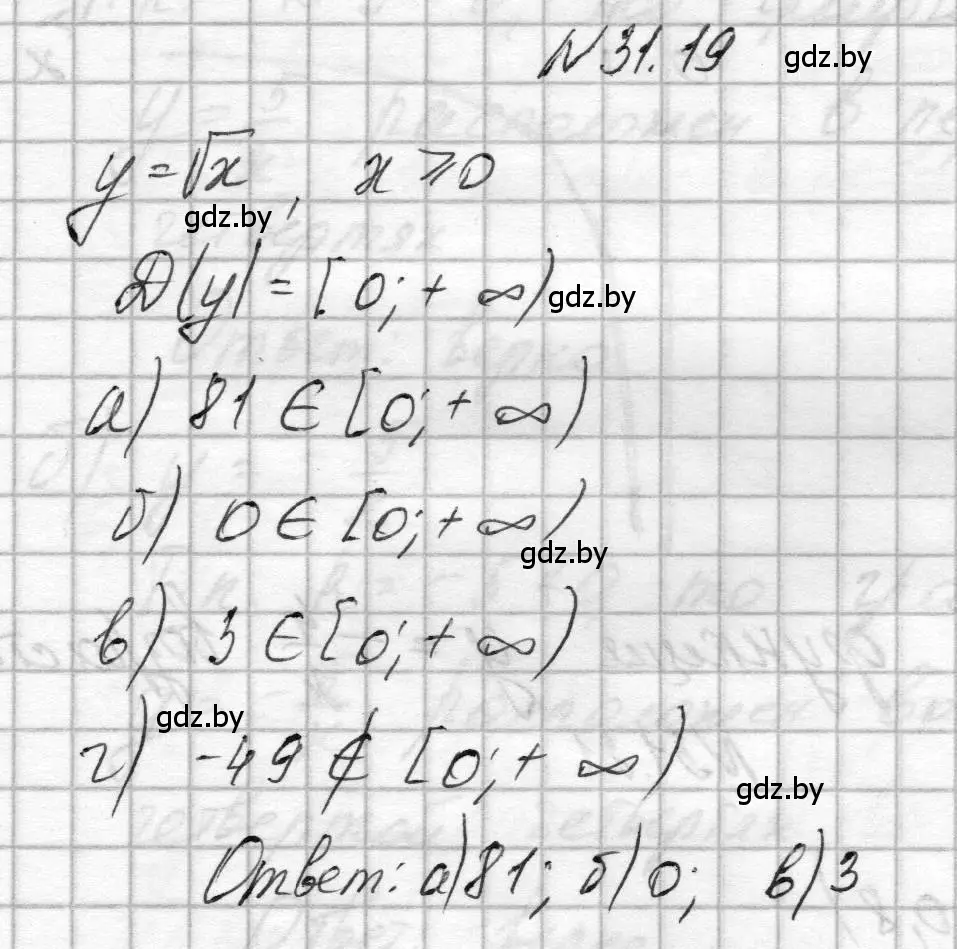 N 31.19 gdz.by
y = √x, x ⩾ 0
gdz.by
Д(y) = [0; + ∞) gdz.by
а) 81 ∈ [0; + ∞)
б) 0 ∈ [0; + ∞)
gdz.by
в) 3 ∈ [0; + ∞)
gdz.by
г) -49 ∉ [0; + ∞)
gdz.by
Ответ: а) 81; б) 0; в) 3